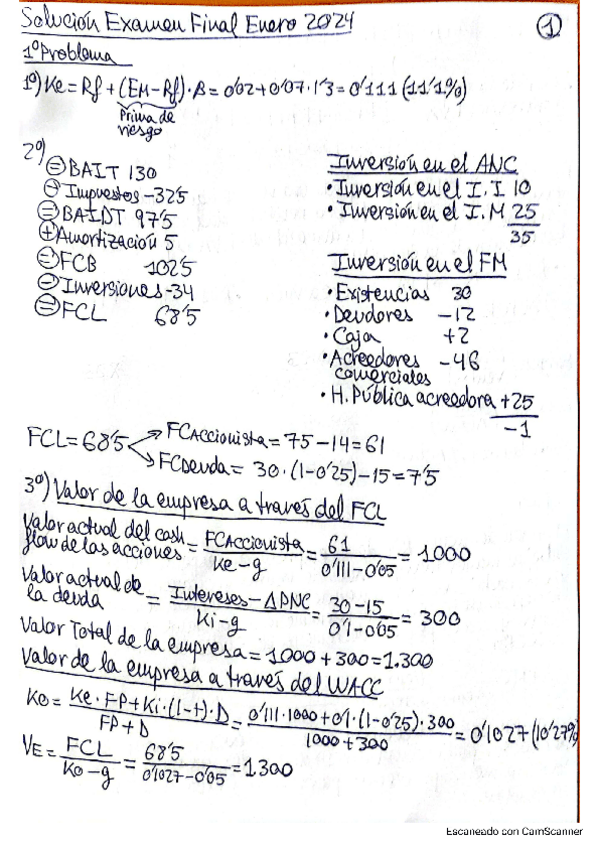 Solución Examen Final Enero 2024
1
1º Problema
1º) Ke = Rf + (EM - Rf) · β = 0'02 + 0'07 · 1'3 = 0'111 (11'1%)
Prima de
riesgo
2º)
⊜ BAIT 130
⊖ Impuestos -32'5
⊜ BAIDT 97'5
⊕ Amortización 5
⊜ FCB 102'5
⊖ Inversiones -34
⊜ FCL 68'5
Inversión en el ANC
• Inversión en el I.I 10
• Inversión en el I.M 25
35
Inversión en el FM
• Existencias 30
• Deudores -12
• Caja +2
• Acreedores -46
comerciales
• H. Pública acreedora +25
-1
FCL = 68'5
FCAccionista = 75 - 14 = 61
FCDeuda = 30 · (1 - 0'25) - 15 = 7'5
3º) Valor de la empresa a través del FCL
Valor actual del cash
flow de las acciones = FCAccionista / Ke - g = 61 / 0'111 - 0'05 = 1000
Valor actual de
la deuda = Intereses - ΔPNC / Ki - g = 30 - 15 / 0'1 - 0'05 = 300
Valor Total de la empresa = 1000 + 300 = 1.300
Valor de la empresa a través del WACC
Ko = Ke · FP + Ki · (1 - t) · D / FP + D = 0'111 · 1000 + 0'1 · (1 - 0'25) · 300 / 1000 + 300 = 0'1027 (10'27%)
VE = FCL / Ko - g = 68'5 / 0'1027 - 0'05 = 1300
Escaneado con CamScanner